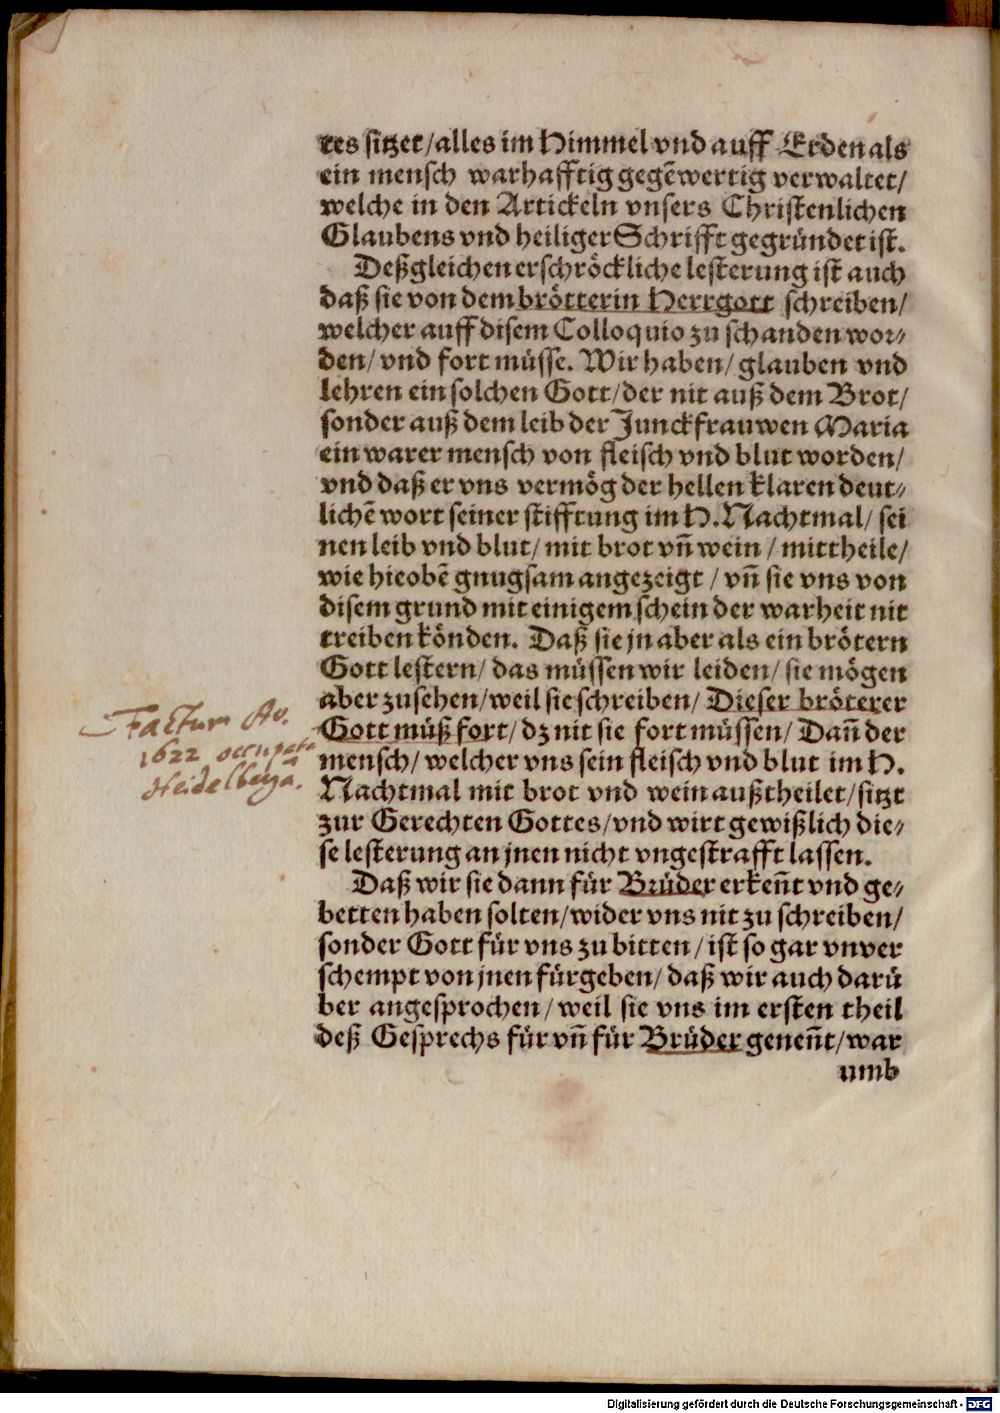 tes sitzet/alles im Himmel vnd auff Erden als
ein mensch warhafftig gegẽwertig verwaltet/
welche in den Artickeln vnsers Christenlichen
Glaubens vnd heiliger Schrifft gegründet ist.
Deßgleichen erschröckliche lesterung ist auch
daß sie von dem brötterin Herrgott schreiben/
welcher auff disem Colloquio zu schanden wor-
den/ vnd fort müsse. Wir haben/ glauben vnd
lehren ein solchen Gott/der nit auß dem Brot/
sonder auß dem leib der Junckfrauwen Maria
ein warer mensch von fleisch vnd blut worden/
vnd daß er vns vermög der hellen klaren deut-
lichẽ wort seiner stifftung im H. Nachtmal/ sei
nen leib vnd blut/ mit brot vñ wein / mittheile/
wie hieobẽ gnugsam angezeigt / vñ sie vns von
disem grund mit einigem schein der warheit nit
treiben könden. Daß sie jn aber als ein brötern
Gott lestern/ das müssen wir leiden/ sie mögen
aber zusehen/weil sie schreiben/ Dieser bröterer
Gott müß fort/ dz nit sie fort müssen/ Dañ der
mensch/ welcher vns sein fleisch vnd blut im H.
Nachtmal mit brot vnd wein außtheilet/sitzt
zur Gerechten Gottes/vnd wirt gewißlich die-
se lesterung an jnen nicht vngestrafft lassen.
Daß wir sie dann für Brüder erkeñt vnd ge-
betten haben solten/wider vns nit zu schreiben/
sonder Gott für vns zu bitten/ ist so gar vnver
schempt von jnen fürgeben/ daß wir auch darü
ber angesprochen/ weil sie vns im ersten theil
deß Gesprechs für vñ für Brüder geneñt/war
umb
Factum Ao.
1622 occupata
Heidelberga.
Digitalisierung gefördert durch die Deutsche Forschungsgemeinschaft - DFG